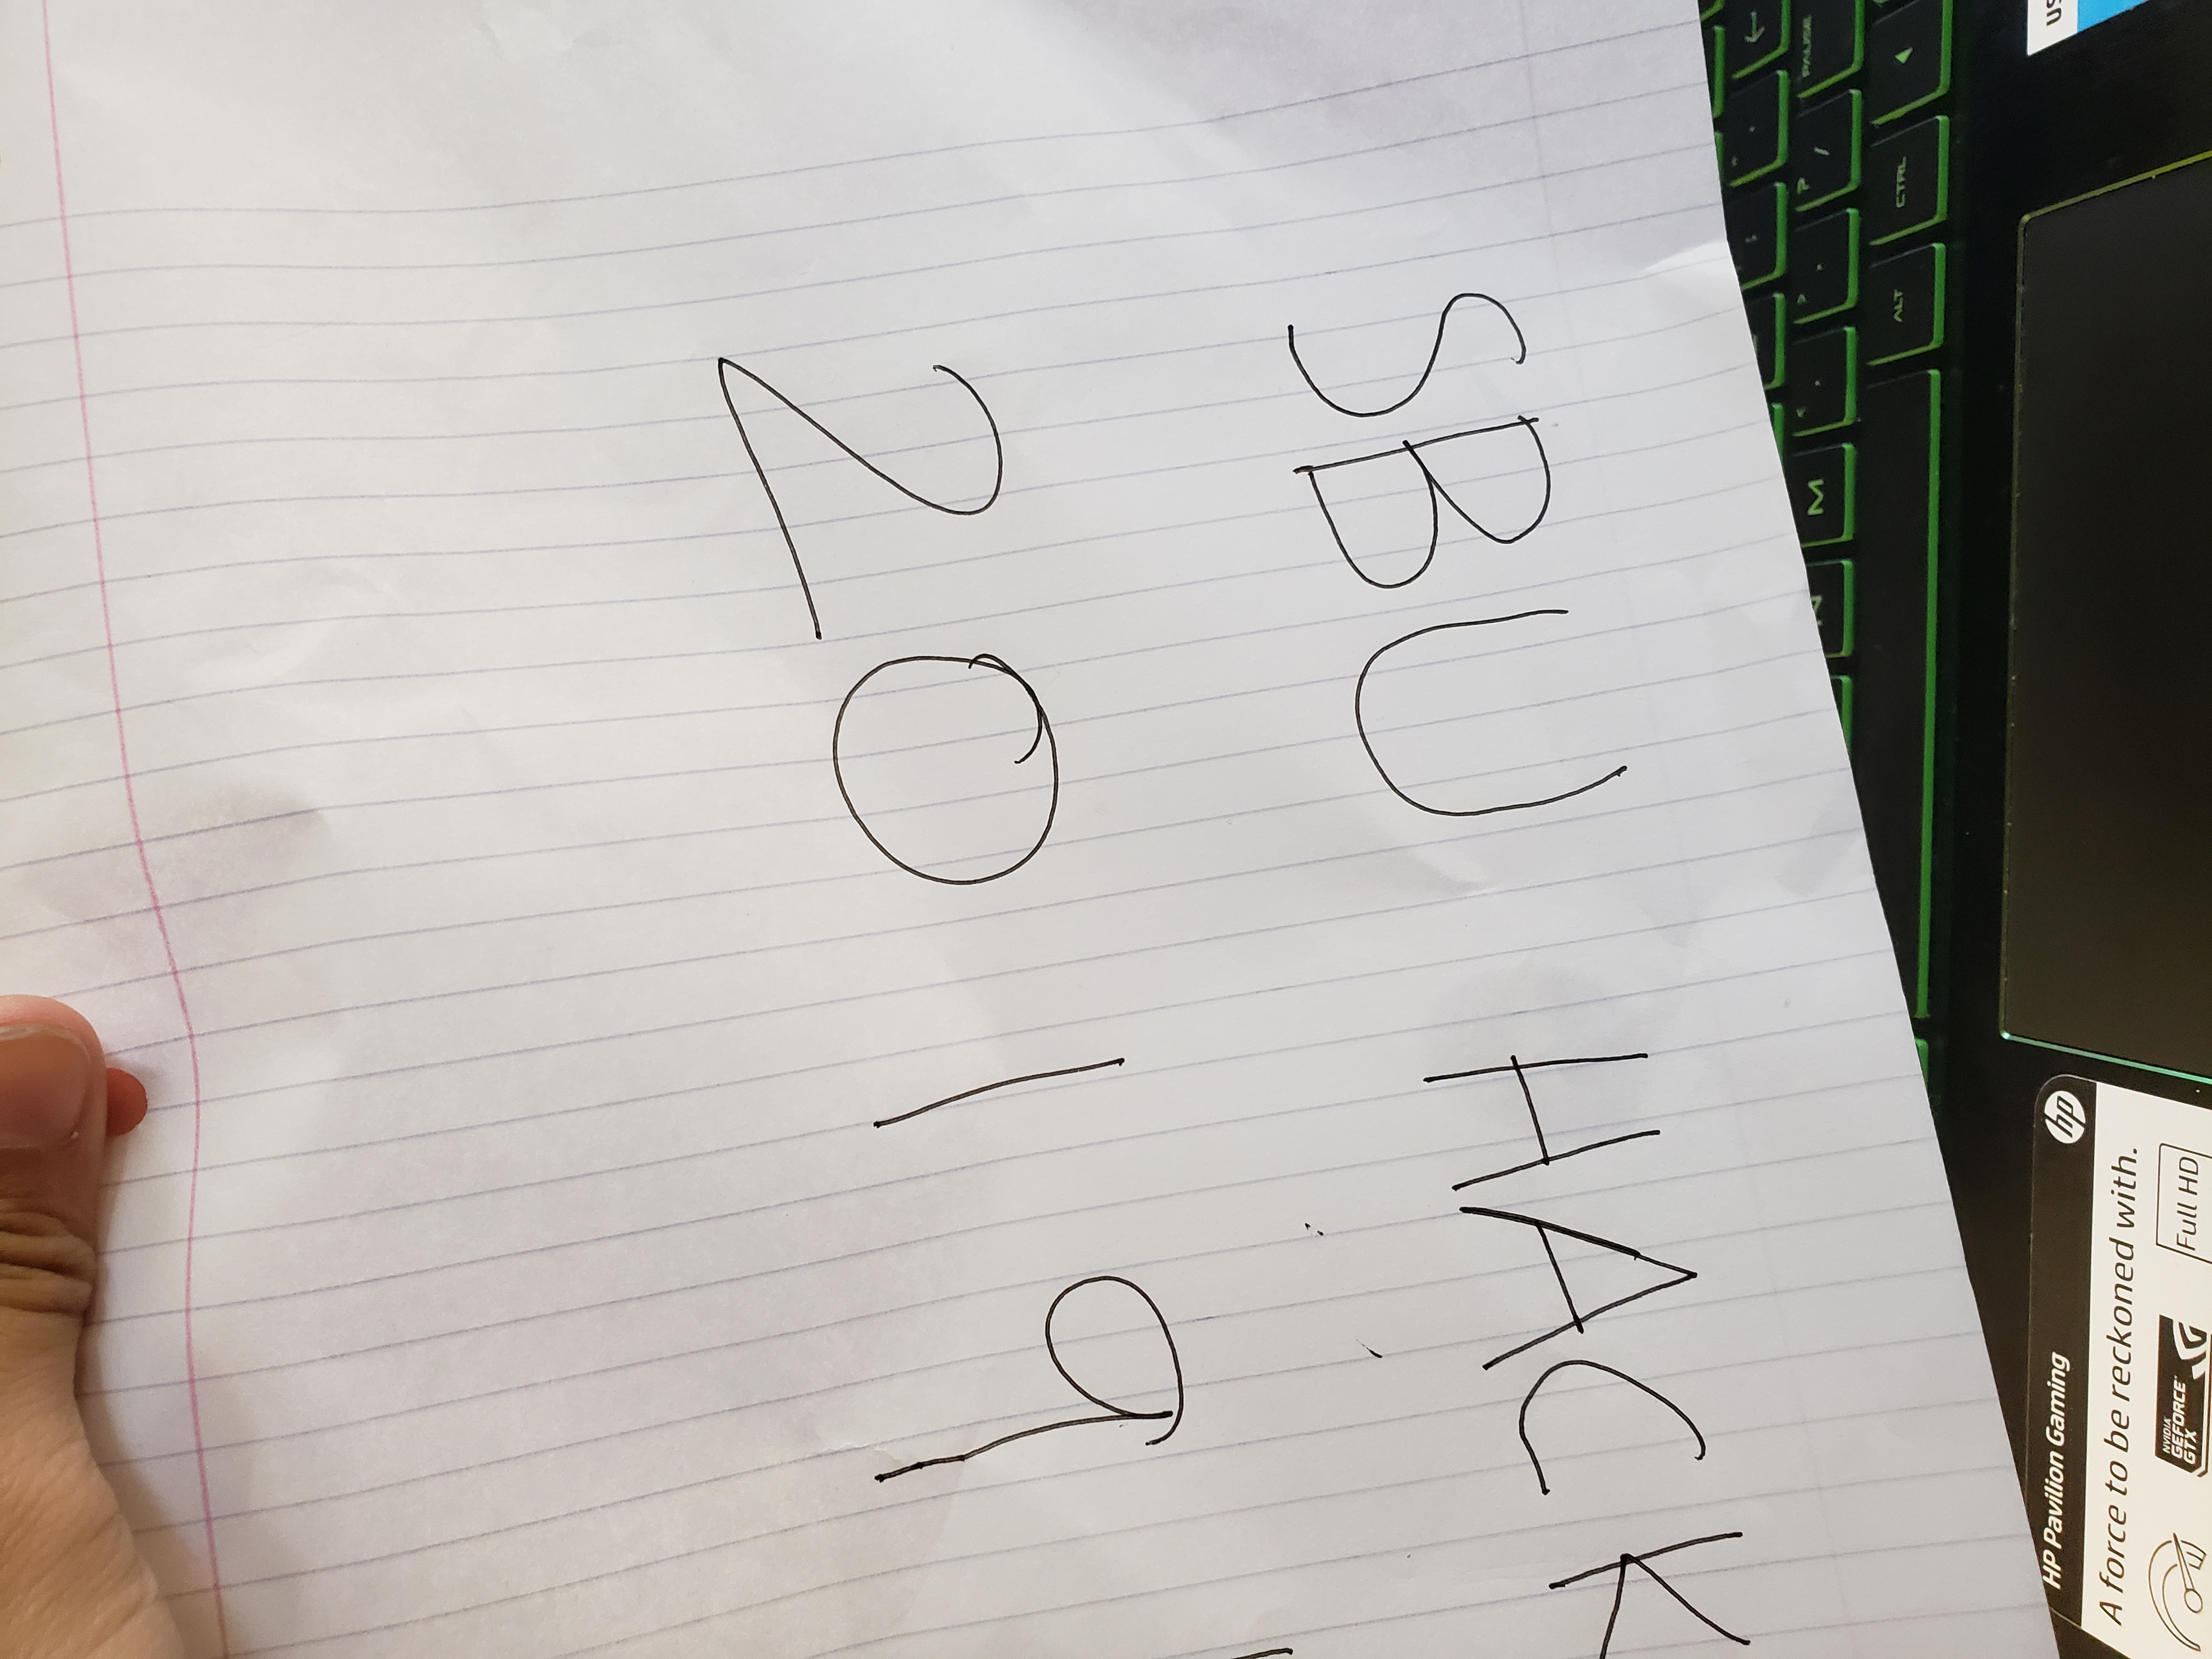 SBU HACK
2019
N M < , > . ? / PAUSE
ALT CTRL
HP Pavilion Gaming hp
A force to be reckoned with.
NVIDIA GEFORCE GTX
Full HD